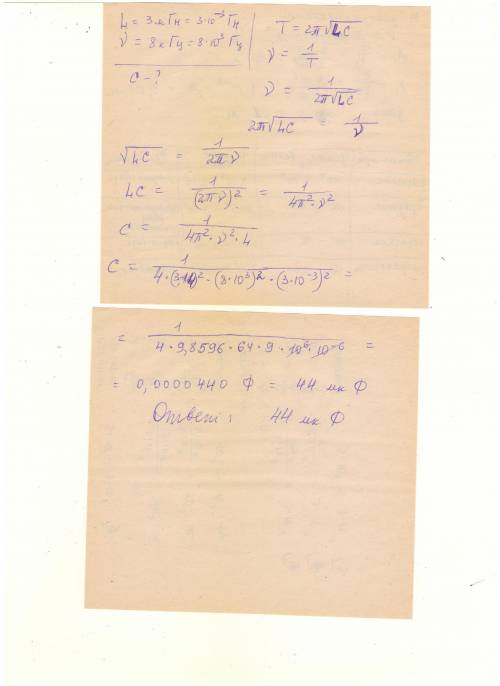 L = 3 мГн = 3·10⁻³ Гн
ν = 8 кГц = 8·10³ Гц
C - ?
T = 2π√LC
ν = 1/T
ν = 1/(2π√LC)
2π√LC = 1/ν
√LC = 1/(2πν)
LC = 1/(2πν)² = 1/(4π²·ν²)
C = 1/(4π²·ν²·L)
C = 1/(4·(3,14)²·(8·10³)²·(3·10⁻³)²) =
= 1/(4·9,8596·64·9·10⁶·10⁻⁶) =
= 0,0000440 Ф = 44 мкФ
Ответ: 44 мкФ